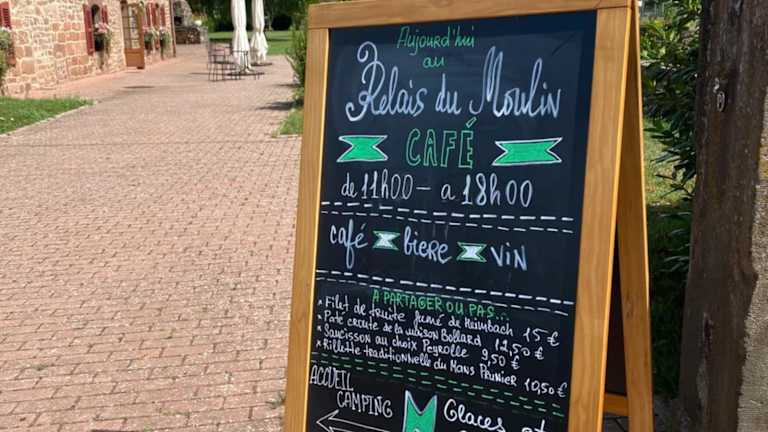 Aujourd'hui
au
Relais du Moulin
CAFÉ
de 11H00 - a 18H00
café biere vin
A PARTAGER OU PAS...
* Filet de truite fumé de Heimbach 15 €
* Paté croute de la maison Bollard 12,50 €
* Saucisson au choix Peyrolle 9,50 €
* Rillette traditionnelle du Mans Prunier 10,50 €
ACCUEIL
CAMPING
Glaces et